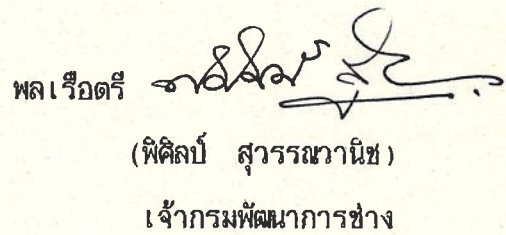 พลเรือตรี
(พิศิลป์ สุวรรณวานิช)
เจ้ากรมพัฒนาการช่าง